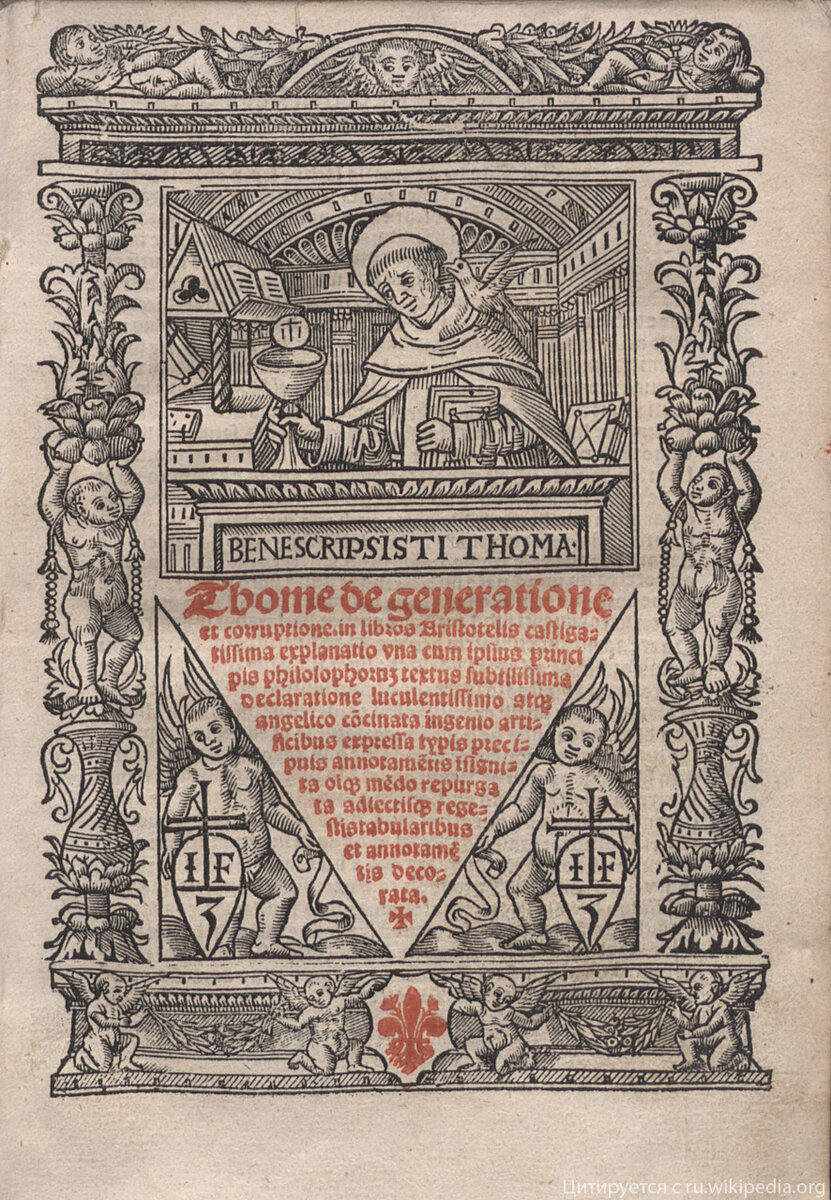 BENESCRIPSISTI THOMA:
Thome de generatione
et corruptione.in libros Aristotelis castiga-
tissima explanatio vna cum ipsius princi
pis philosophorũ textus subtilissima
declaratione luculentissimo atqꝫ
angelico cõcinata ingenio arti-
ficibus expressa typis preci-
puis annotamẽtis isigni-
ta oiqꝫ mẽdo repurga
ta adiectisqꝫ rege-
stis tabularibus
et annotamẽ
tis deco-
rata.
I F
3
I F
3
Цитируется с ru.wikipedia.org